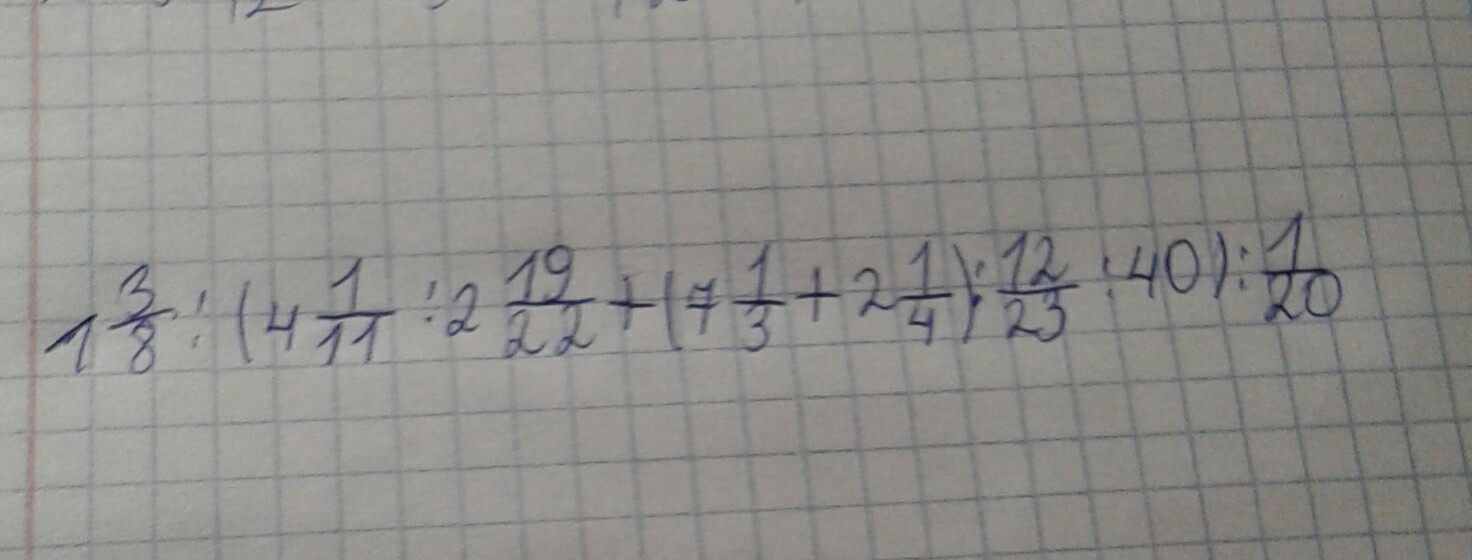 1 3/8 : (4 1/11 : 2 19/22 + (7 1/3 + 2 1/4) : 12/23 : 40) : 1/20